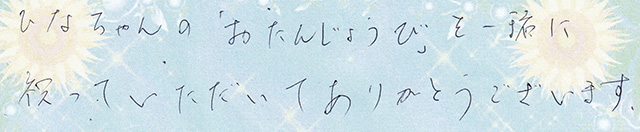 ひなちゃんの「おたんじょうび」を一緒に
祝っていただいてありがとうございます。